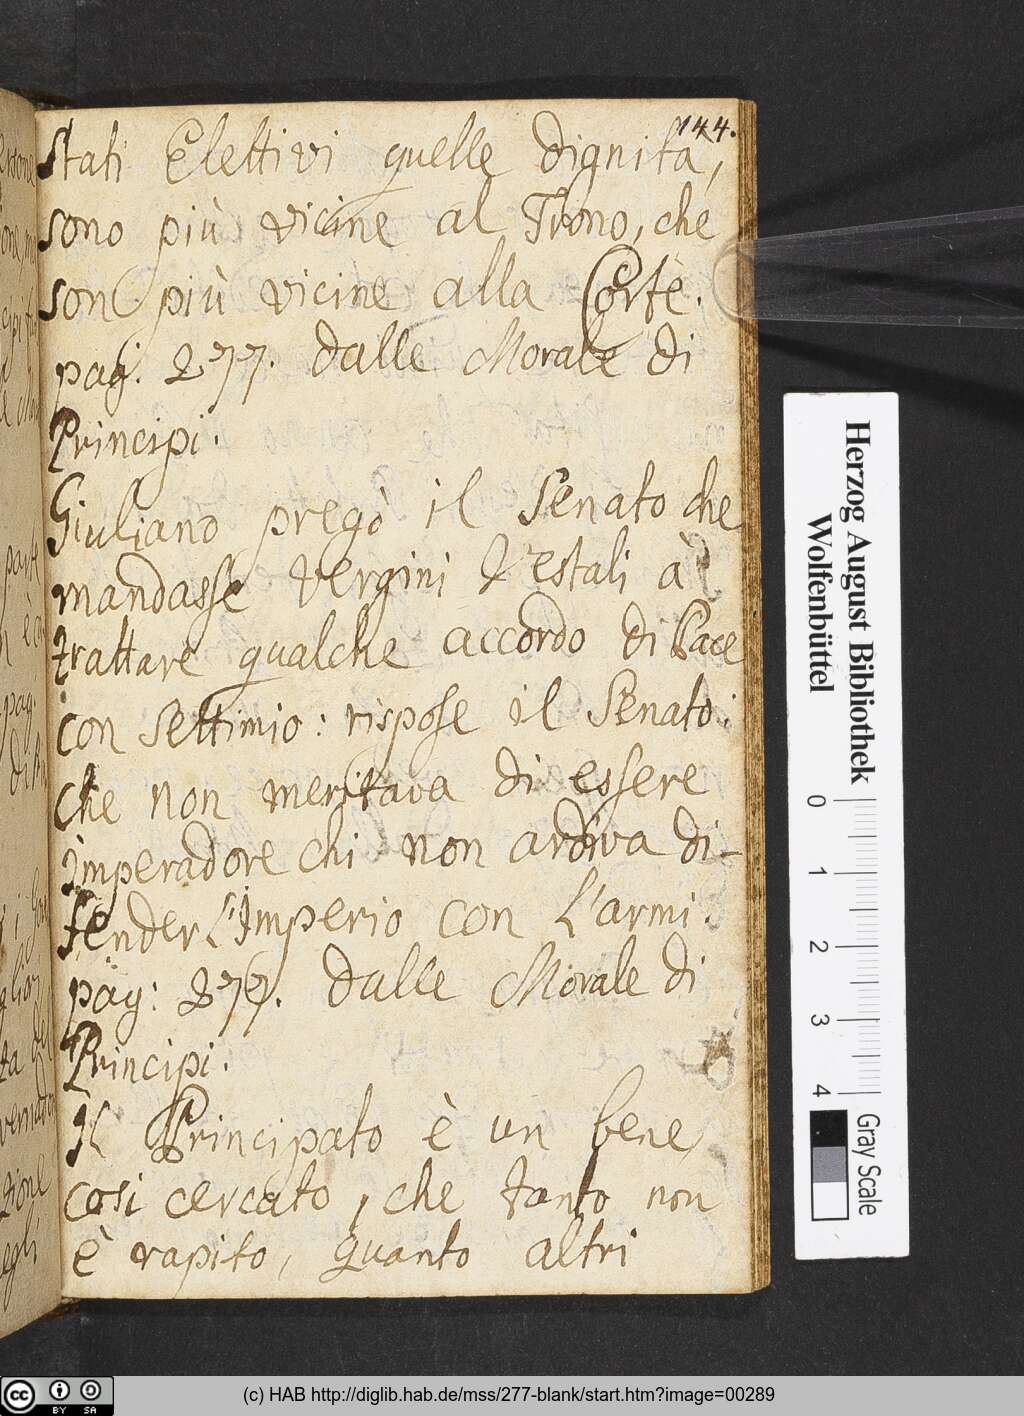 144.
Stati Elettivi quelle dignità,
sono più vicine al Trono, che
son più vicine alla Corte.
pag: 277. dalle Morale di
Principi.
Giuliano pregò il Senato che
mandasse Vergini Vestali à
trattare qualche accordo di Pace
con Settimio: rispose il Senato:
che non meritava di essere
imperadore chi non ardiva di-
fender l'Imperio con l'armi.
pag: 277. dalle Morale di
Principi.
Il Principato è un bene
cosi cercato, che tanto non
è rapito, quanto altri
Herzog August Bibliothek
Wolfenbüttel
0 1 2 3 4
Gray Scale
cc BY SA
(c) HAB http://diglib.hab.de/mss/277-blank/start.htm?image=00289